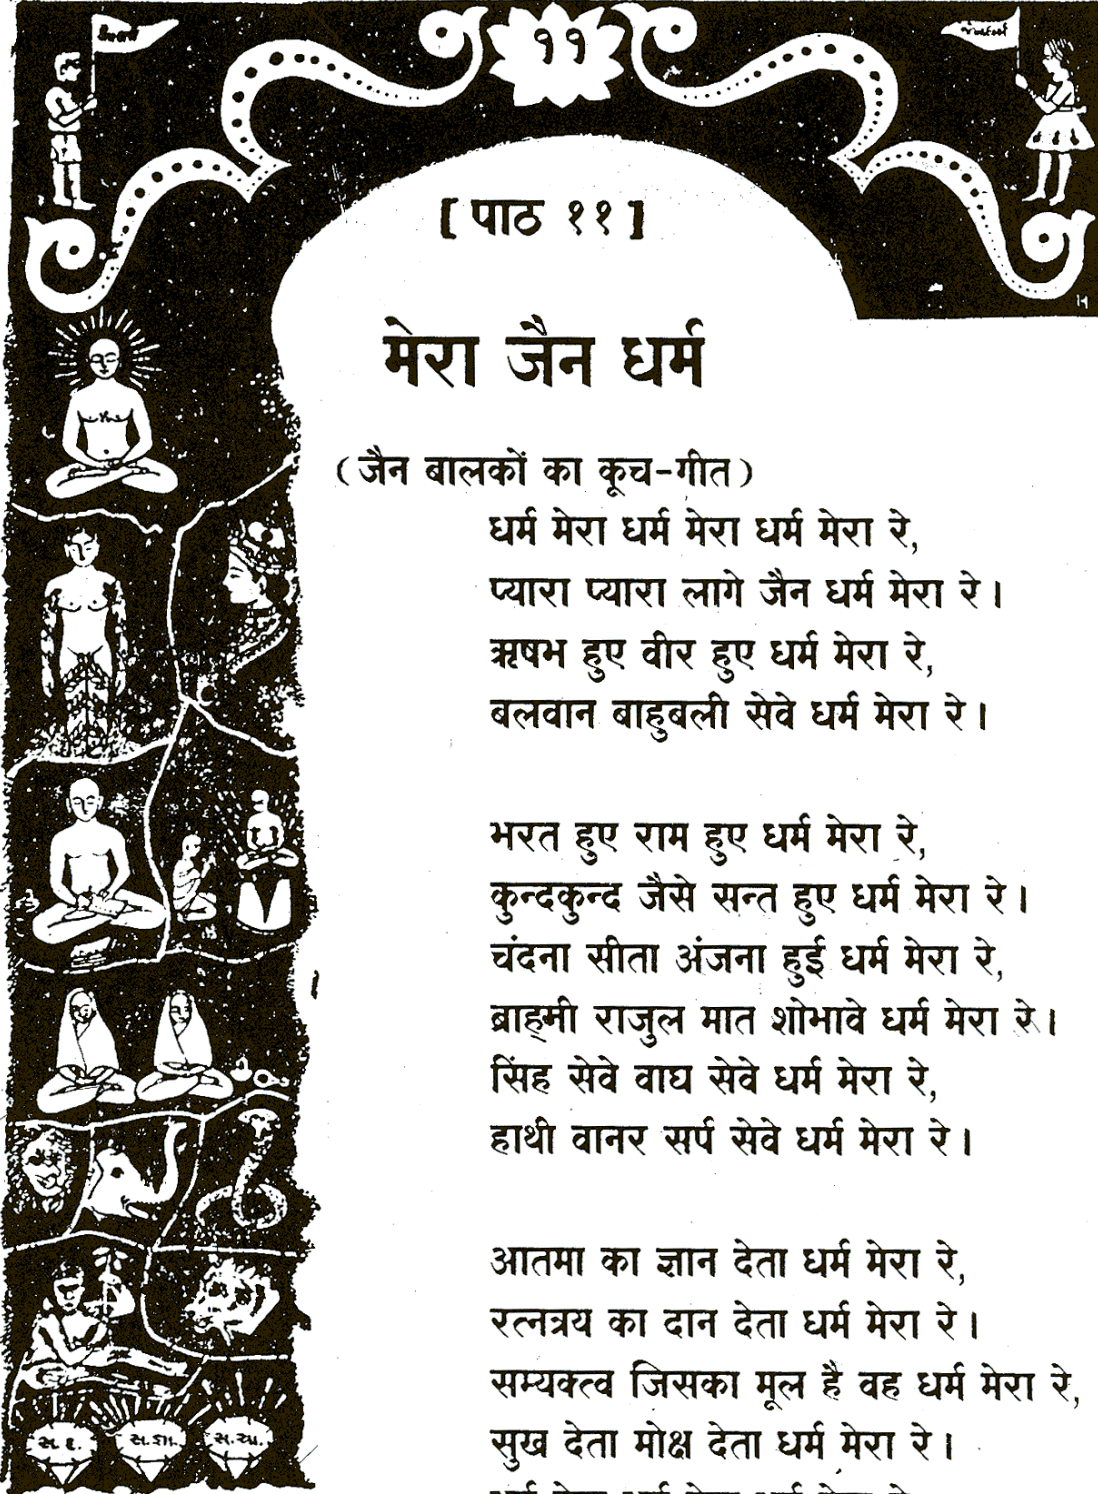 ११
[ पाठ ११ ]
मेरा जैन धर्म
(जैन बालकों का कूच-गीत)
धर्म मेरा धर्म मेरा धर्म मेरा रे,
प्यारा प्यारा लागे जैन धर्म मेरा रे।
ऋषभ हुए वीर हुए धर्म मेरा रे,
बलवान बाहुबली सेवे धर्म मेरा रे।
भरत हुए राम हुए धर्म मेरा रे,
कुन्दकुन्द जैसे सन्त हुए धर्म मेरा रे।
चंदना सीता अंजना हुई धर्म मेरा रे,
ब्राह्मी राजुल मात शोभावे धर्म मेरा रे।
सिंह सेवे वाघ सेवे धर्म मेरा रे,
हाथी वानर सर्प सेवे धर्म मेरा रे।
आतमा का ज्ञान देता धर्म मेरा रे,
रत्नत्रय का दान देता धर्म मेरा रे।
सम्यक्त्व जिसका मूल है वह धर्म मेरा रे,
सुख देता मोक्ष देता धर्म मेरा रे।
સ. દ. સ. જ્ઞા. સ. ચા.